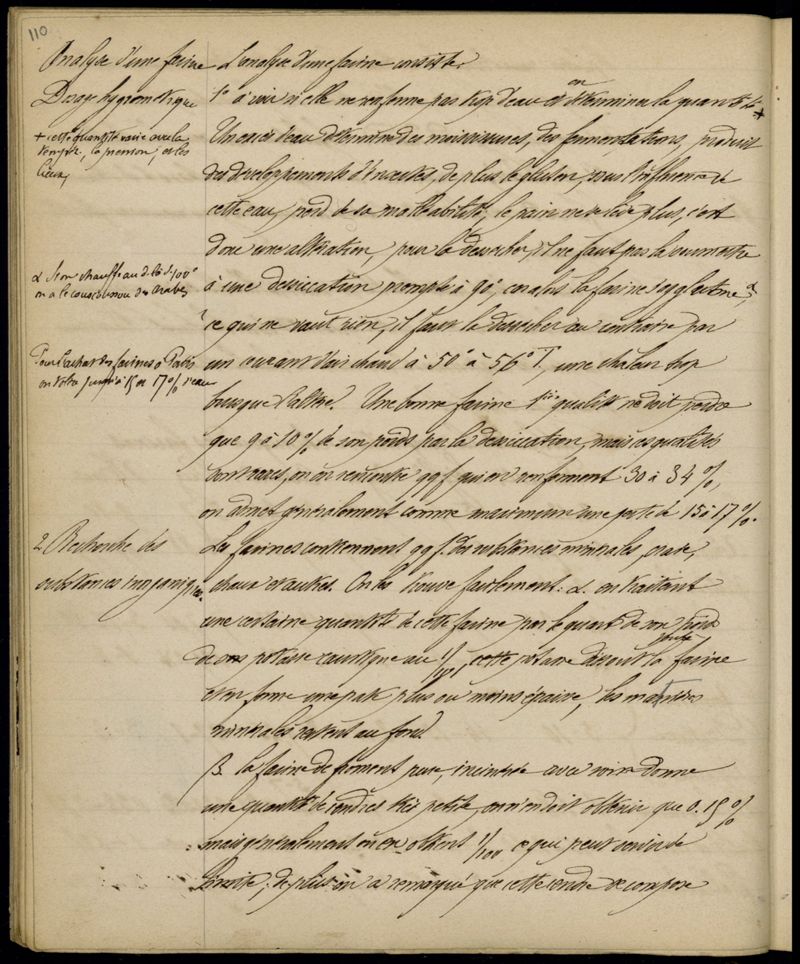 110
Analyse d'une farine
Dosage hygrometrique
+ cette quantité varie avec la
tempre, la pression, et les
lieux,
α Si on chauffe au delà de 100°
on a le couscoussou des Arabes
Pour l'achat des farines à Paris
on tolère jusqu'à 15 ou 17% d'eau
2 Recherche des
substances inorganiques.
L'analyse d'une farine consiste.
1° à voir si elle ne renferme pas trop d'eau et en déterminer la quantité +
Un excès d'eau détermine des moisissures, des fermentations, produit
des développements d'insectes, de plus le gluten, sous l'influence de
cette eau, perd de sa malléabilité, le pain ne se lève plus, c'est
donc une altération, pour la dessécher, il ne faut pas la soumettre
à une dessication prompte à 90°, car alors la farine s'agglutine α
ce qui ne vaut rien, il faut la dessécher au contraire par
un courant d'air chaud à 50° à 56° T, une chaleur trop
brusque l'altère. Une bonne farine 1ère qualité ne doit perdre
que 9 à 10% de son poids par la dessication, mais ces qualités
sont rares, on en rencontre qqf qui en renferment 30 à 34%,
on admet généralement comme maximum une perte de 15 à 17%.
Les farines contiennent qqf. des substances minérales, craie,
chaux et autres. On les trouve facilement: α. en traitant
une certaine quantité de cette farine par le quart de son poids
de potasse caustique au 1/10, cette potasse dissout la farine pure
et en forme une pate plus ou moins épaisse, les matières
minérales restent au fond.
β. la farine de froment pure, incinérée avec soin donne
une quantité de cendres très petite, on n'en doit obtenir que 0.15%
mais généralement on en obtient 1/100 ce qui peut venir de
; de plus on a remarqué que cette cendre se compose